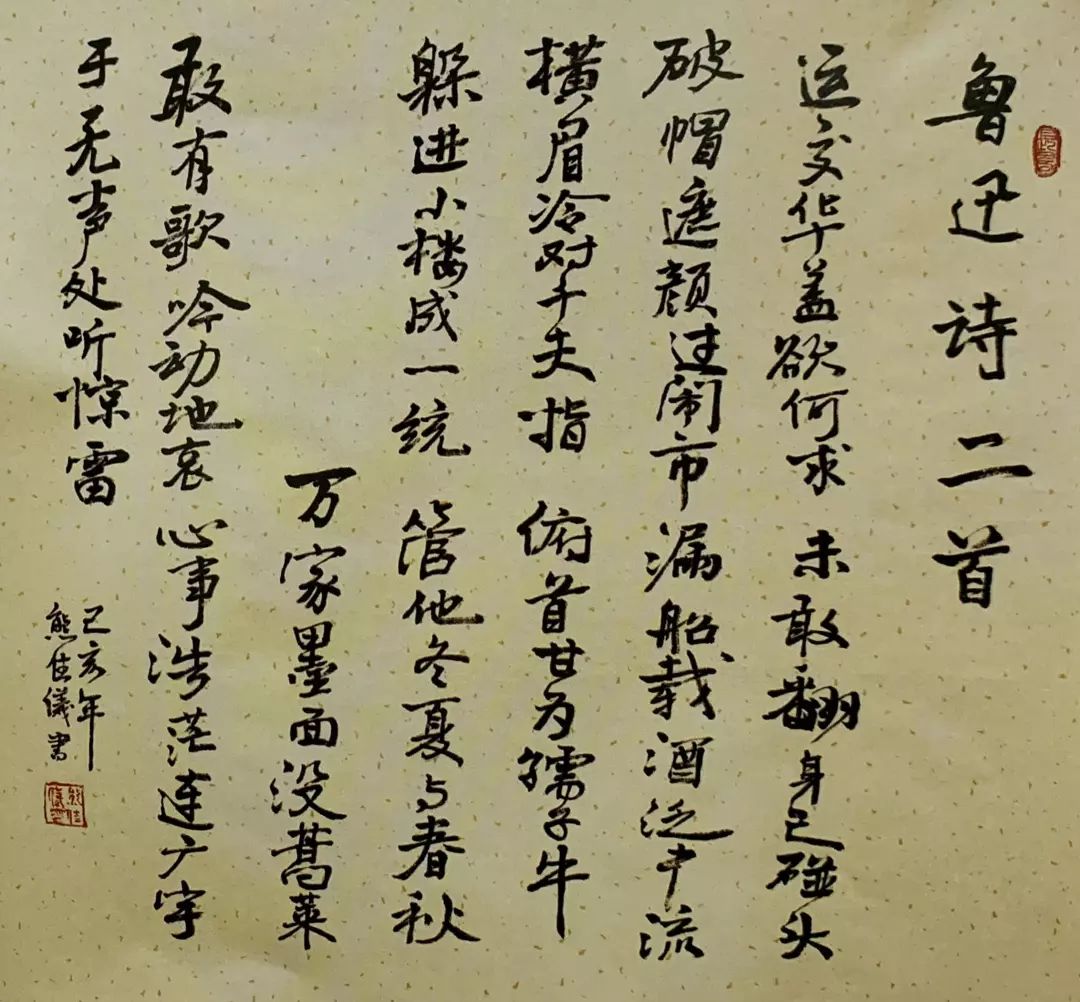 鲁迅诗二首
运交华盖欲何求 未敢翻身已碰头
破帽遮颜过闹市 漏船载酒泛中流
横眉冷对千夫指 俯首甘为孺子牛
躲进小楼成一统 管他冬夏与春秋
万家墨面没蒿莱
敢有歌吟动地哀 心事浩茫连广宇
于无声处听惊雷
己亥年
熊佳仪书